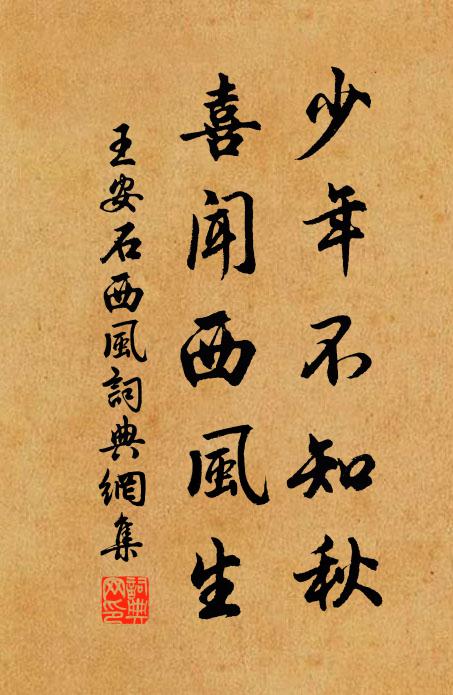 少年不知秋
喜闻西風生
王安石西風詞典網集
詞典
网印